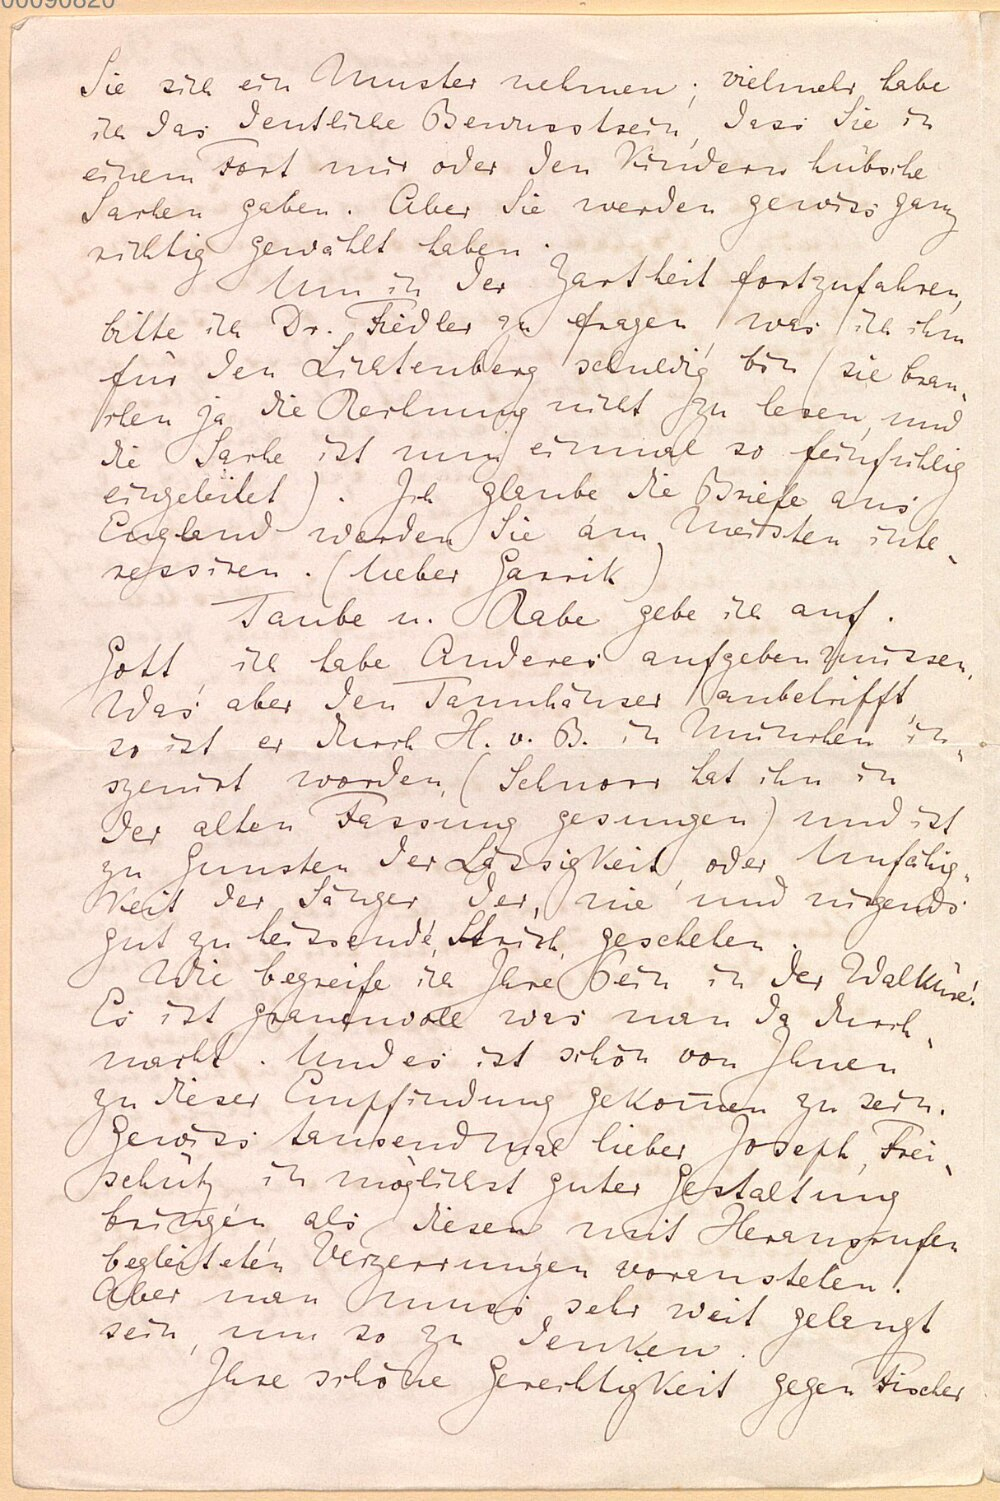 00090820
Sie sich ein Muster nehmen; vielmehr habe
ich das deutliche Bewusstsein, dass Sie in
einem Fort mir oder den Kindern hübsche
Sachen gaben. Aber Sie werden gewiss ganz
richtig gewählt haben.
Um in der Zartheit fortzufahren,
bitte ich Dr. Fiedler zu fragen, was ich ihm
für den Lichtenberg schuldig bin (sie brau-
chen ja die Rechnung nicht zu lesen, und
die Sache ist nun einmal so feinfühlig
eingeleitet). Ich glaube die Briefe aus
England werden Sie am Meisten inte-
ressiren. (Ueber Garrik)
Taube u. Rabe gebe ich auf.
Gott, ich habe Anderes aufgeben müssen.
Was aber den Tannhäuser anbetrifft,
so ist er durch H. v. B. in München in-
szenirt worden, (Schnorr hat ihn in
der alten Fassung gesungen) und ist
zu Gunsten der Lässigkeit, oder Unfähig-
keit der Sänger der, nie und nirgends
gut zu heissende, Strich, geschehen.
Wie begreife ich Ihre Pein in der Walküre!
Es ist grauenvoll was man da durch-
macht. Und es ist schön von Ihnen
zu dieser Empfindung gekom̄en zu sein.
Gewiss tausendmal lieber Joseph, Frei-
schütz in möglichst guter Gestaltung
bringen, als diesen mit Herausrufen
begleiteten Verzerrungen voranstehen!
Aber man muss sehr weit gelangt
sein, um so zu denken.
Ihre schöne Gerechtigkeit gegen Fischer